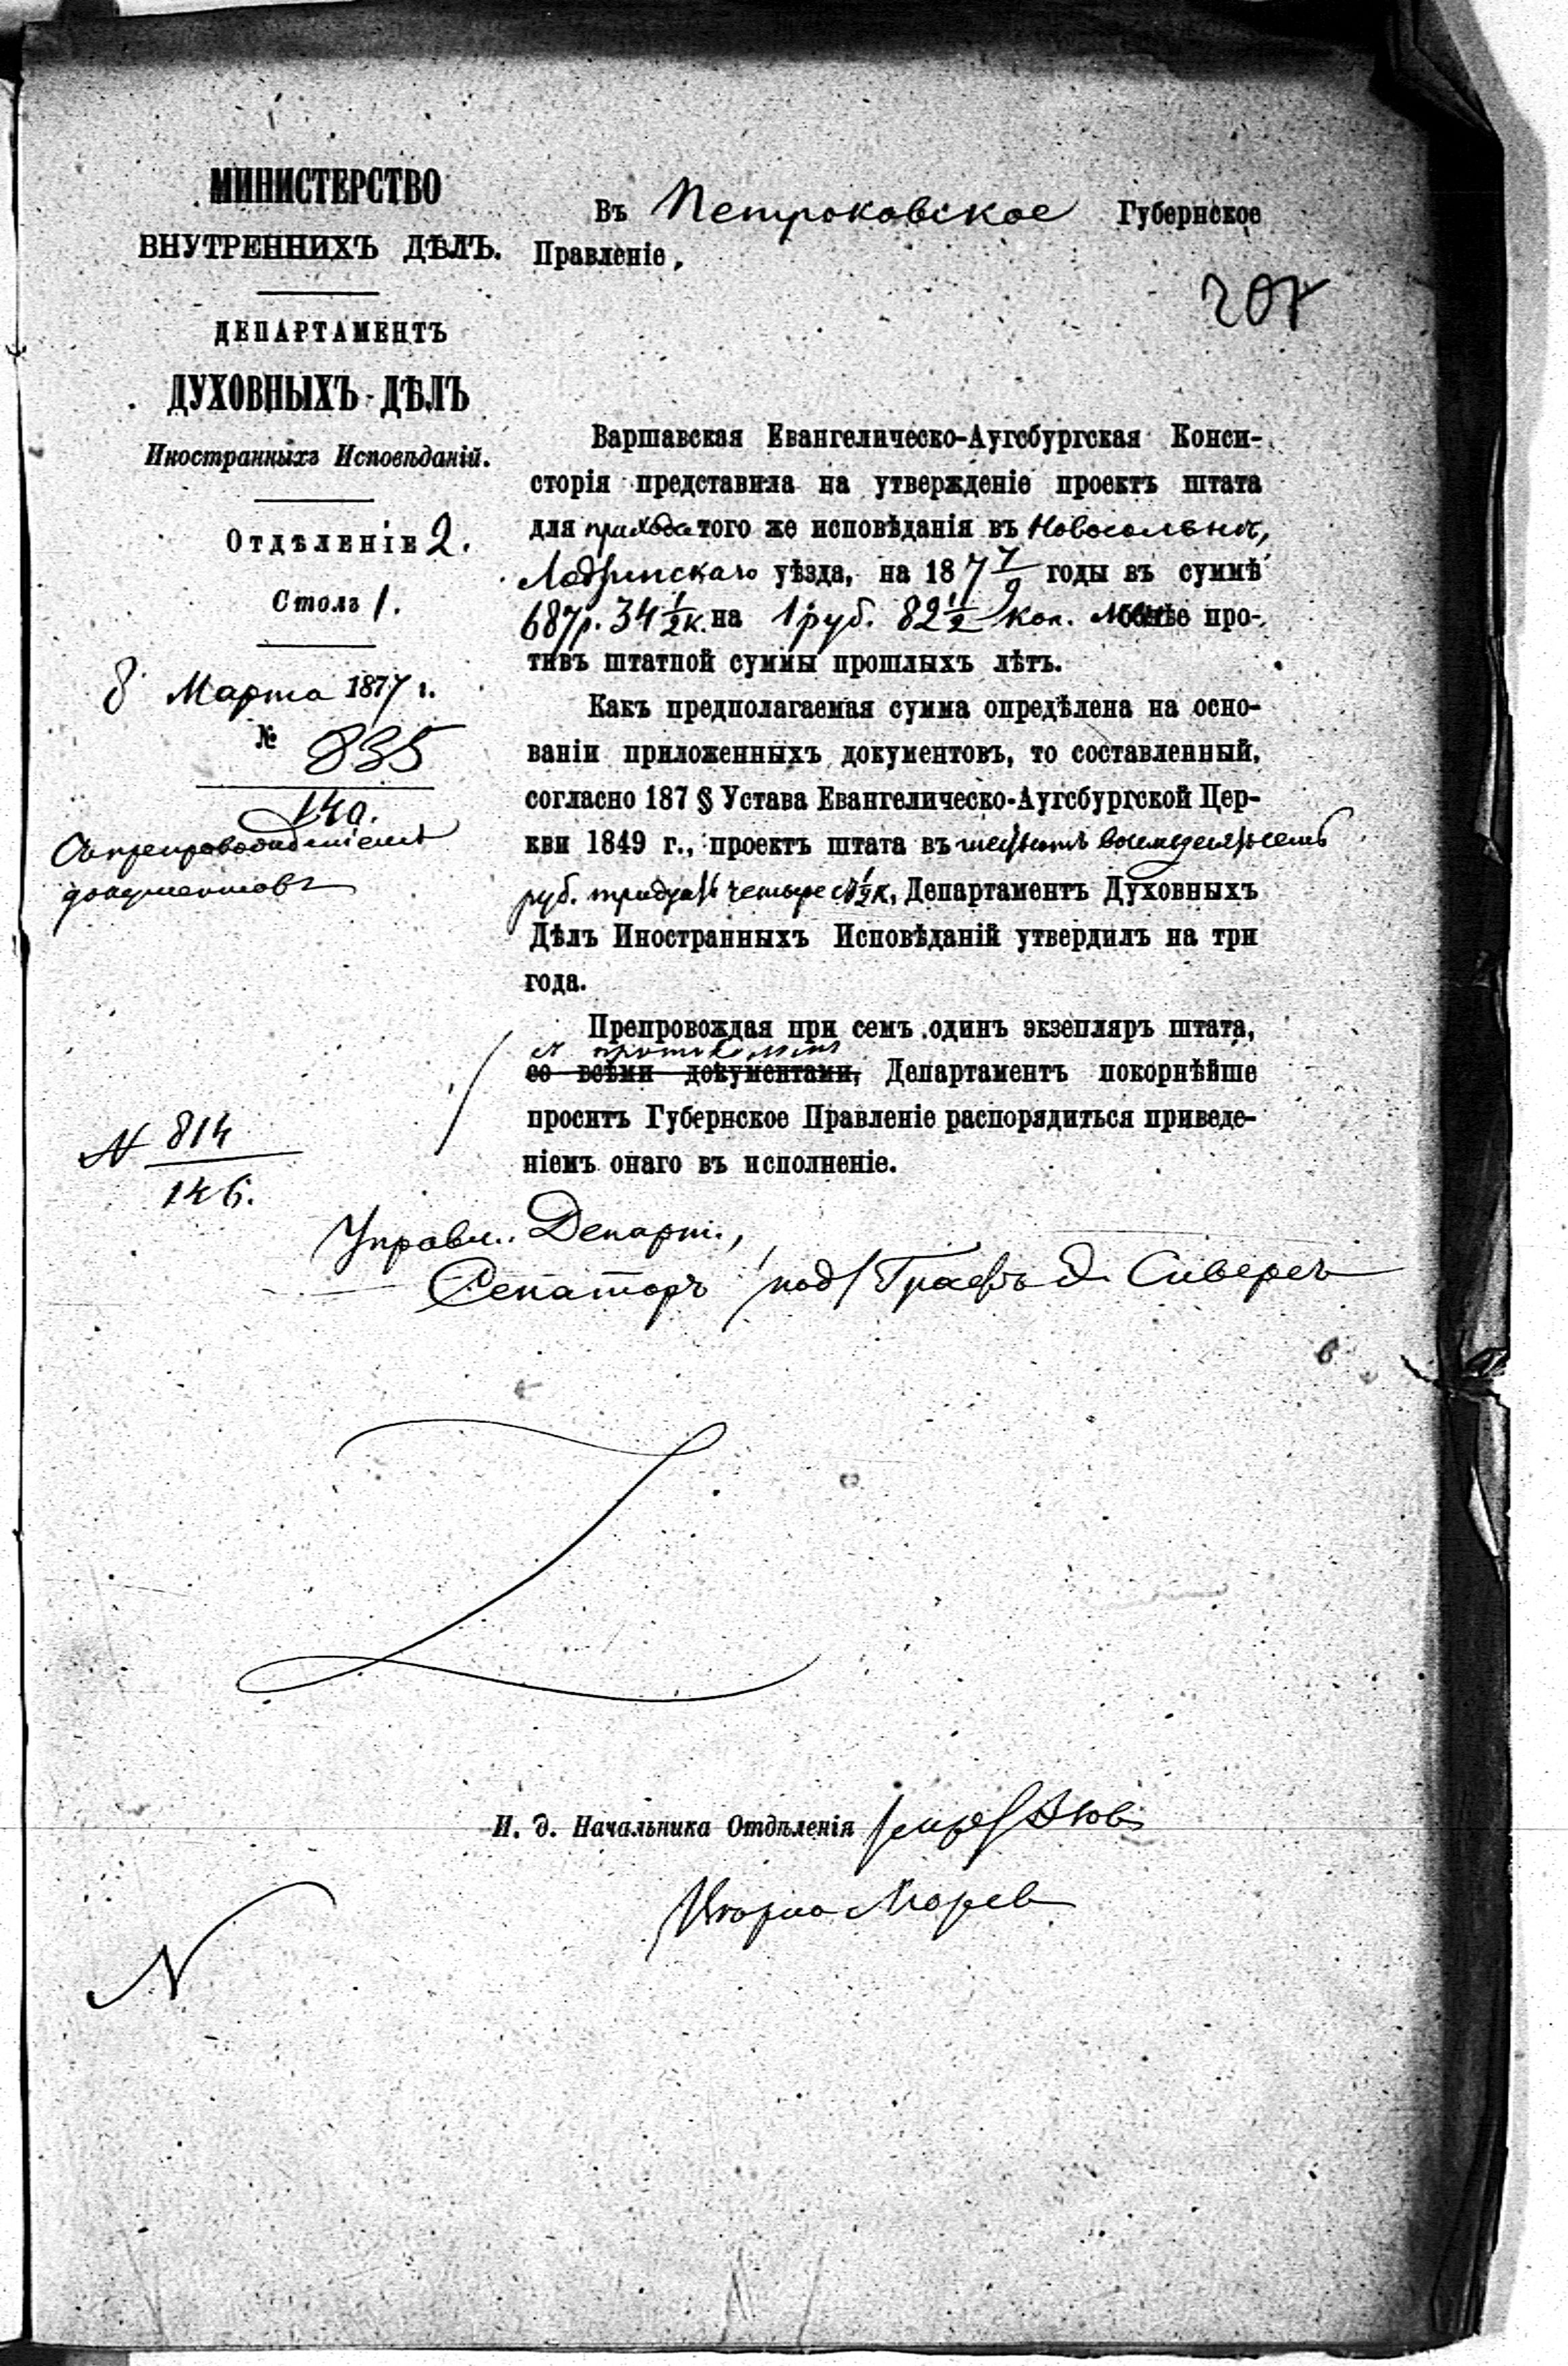 МИНИСТЕРСТВО
ВНУТРЕННИХЪ ДѢЛЪ.
ДЕПАРТАМЕНТЪ
ДУХОВНЫХЪ ДѢЛЪ
Иностранныхъ Исповѣданій.
Отдѣленіе 2.
Столъ 1.
8 Марта 1877 г.
№ 835
140.
документовъ
N 814
146.
Въ Петроковское Губернское
Правленіе,
207
Варшавская Евангелическо-Аугсбургская Конси-
сторія представила на утвержденіе проектъ штата
для прихода того же исповѣданія въ Новосольне,
Лодзинскаго уѣзда, на 187 7/9 годы въ суммѣ
687р. 34 1/2 к. на 1 руб. 82 1/2 коп. менѣе про-
тивъ штатной суммы прошлыхъ лѣтъ.
Какъ предполагаемая сумма опредѣлена на осно-
ваніи приложенныхъ документовъ, то составленный,
согласно 187 § Устава Евангелическо-Аугсбургской Цер-
кви 1849 г., проектъ штата въ шестьсотъ восемдесятъ семь
руб. тридцать четыре с 1/2 к, Департаментъ Духовныхъ
Дѣлъ Иностранныхъ Исповѣданій утвердилъ на три
года.
Препровождая при семъ одинъ экзепляръ штата,
с протоколомъ
со всѣми документами, Департаментъ покорнѣйше
проситъ Губернское Правленіе распорядиться приведе-
ніемъ онаго въ исполненіе.
Управл. Департ.,
Сенаторъ /под/ Графъ Э. Сиверсъ
И. д. Начальника Отдѣленія
N